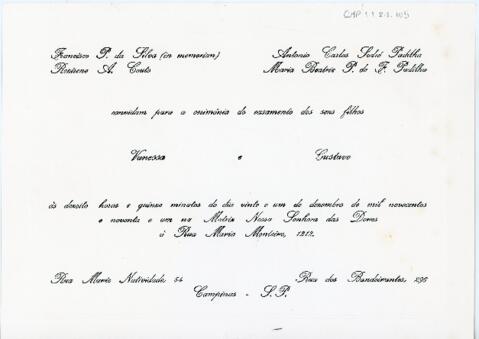 CMP 1.1.8.2.105
Francisco P. da Silva (in memorian)
Antonio Carlos Sodré Padilha
A. Couto
Maria Beatriz P. de F. Padilha
convidam para a cerimônia do casamento dos seus filhos
Vanessa e Gustavo
às dezoito horas e quinze minutos do dia vinte e um de dezembro de mil novecentos
e noventa e um na Matriz Nossa Senhora das Dores
à Rua Maria Monteiro, 1212.
Rua Maria Natividade, 54
Rua dos Bandeirantes, 296
Campinas - S.P.